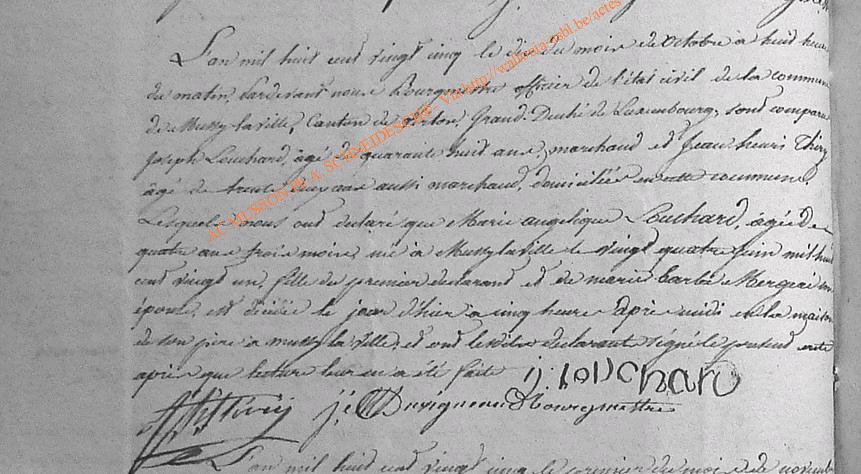 L'an mil huit cent vingt cinq le dix du mois de octobre a huit heure
du matin, Pardevant nous Bourgmestre officier de l'état civil de la commune
de Mussy la ville, Canton de Virton, Grand-Duché de Luxembourg, sont comparu
Joseph Louchard, agé de quarante huit ans, marchand et Jean henri Thiry
âgé de trente ans aussi marchand, domiciliés en cette commune.
Lesquels nous ont déclaré que Marie angelique Louchard, agée de
quatre ans trois mois, né a Mussy la ville le vingt quatre juin mil huit
cent vingt un, fille de premier declarant et de marie barbe Mergeai son
épouse, est décédée le jour d'hier a cinq heure après midi en la maison
de son père a mussy la ville, et ont les dits declarant signé le present acte
après que lecture leur en a été faite J: LOUChard
JhThiry j: Duvigneau Bourgmestre
L'an mil huit cent vingt cinq le premier du mois de novemb
AC MUSSON BY A. SCHNEIDESCH © Via http://wallonia-asbl.be/actes